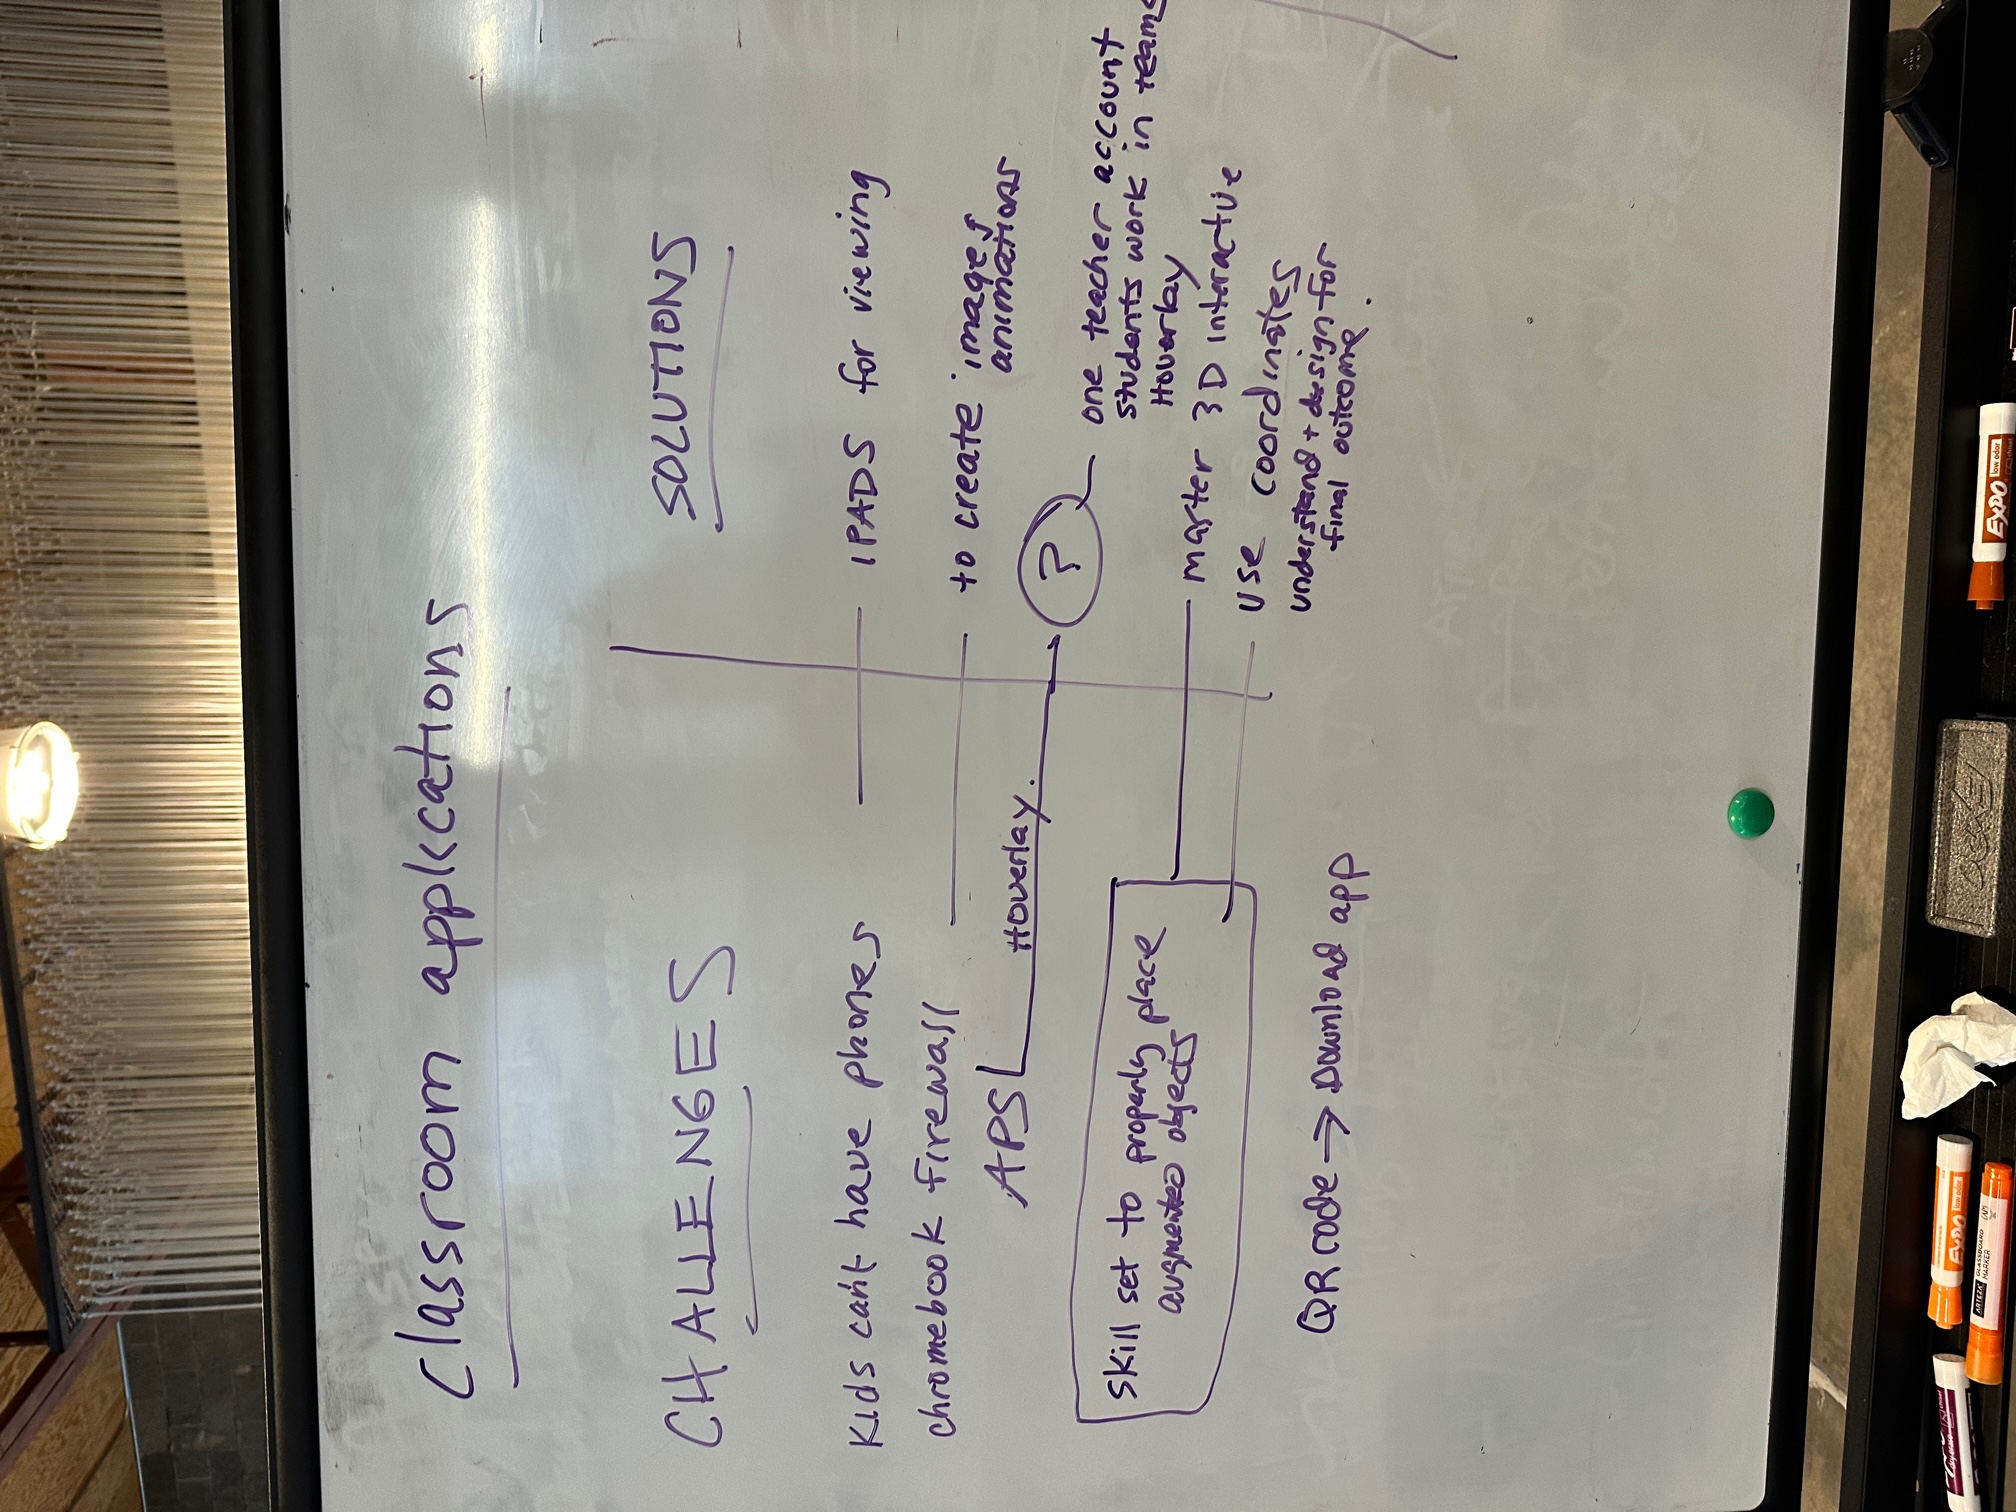 Classroom applications
CHALLENGES
SOLUTIONS
Kids can't have phones
IPADS for viewing
chromebook firewall
to create images
animations
APS
Hoverlay.
?
one teacher account
students work in teams
Hoverlay
skill set to properly place
augmented objects
master 3D interactive
use coordinates
understand + design for
final outcome.
QR code → Download app
EXPO
low odor
EXPO
ARTEZA
GLASSBOARD
MARKER